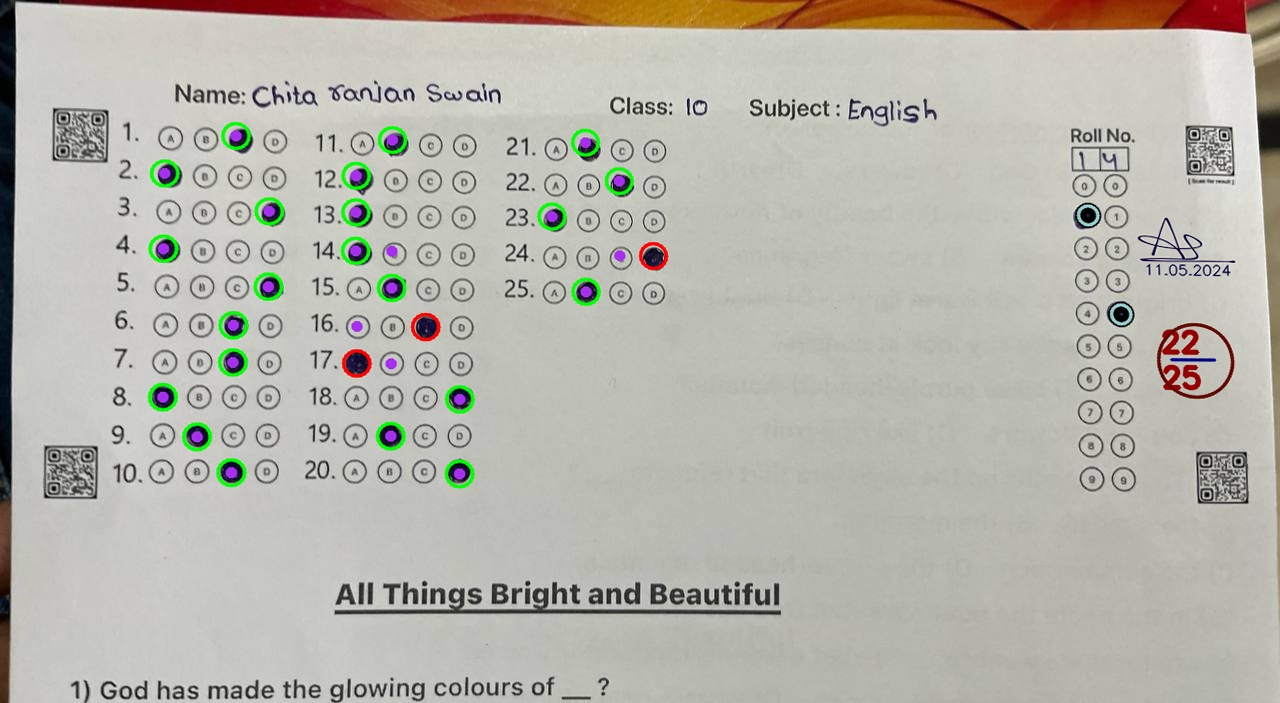 Name: Chita ranjan Swain
Class: 10 Subject: English
1. A B D
2. B C D
3. A B C
4. B C D
5. A B C
6. A B D
7. A B D
8. B C D
9. A C D
10. A B D
11. A C D
12. B C D
13. B C D
14. C D
15. A C D
16. B D
17. C D
18. A B C
19. A C D
20. A B C
21. A C D
22. A B D
23. B C D
24. A B
25. A C D
Roll No.
1 4
0 0
1
2 2
3 3
4
5 5
6 6
7 7
8 8
9 9
[Scan for result]
11.05.2024
22
25
All Things Bright and Beautiful
1) God has made the glowing colours of __ ?